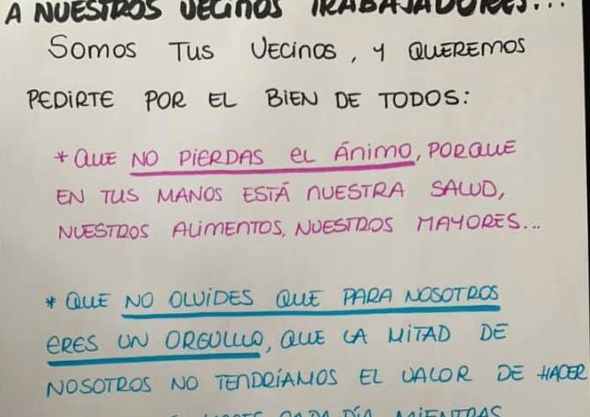 A NUESTROS VECINOS TRABAJADORES...
SOMOS TUS VECINOS, Y QUEREMOS
PEDIRTE POR EL BIEN DE TODOS:
* QUE NO PIERDAS EL ÁNIMO, PORQUE
EN TUS MANOS ESTÁ NUESTRA SALUD,
NUESTROS ALIMENTOS, NUESTROS MAYORES...
* QUE NO OLVIDES QUE PARA NOSOTROS
ERES UN ORGULLO, QUE LA MITAD DE
NOSOTROS NO TENDRÍAMOS EL VALOR DE HACER
CADA DÍA MIENTRAS